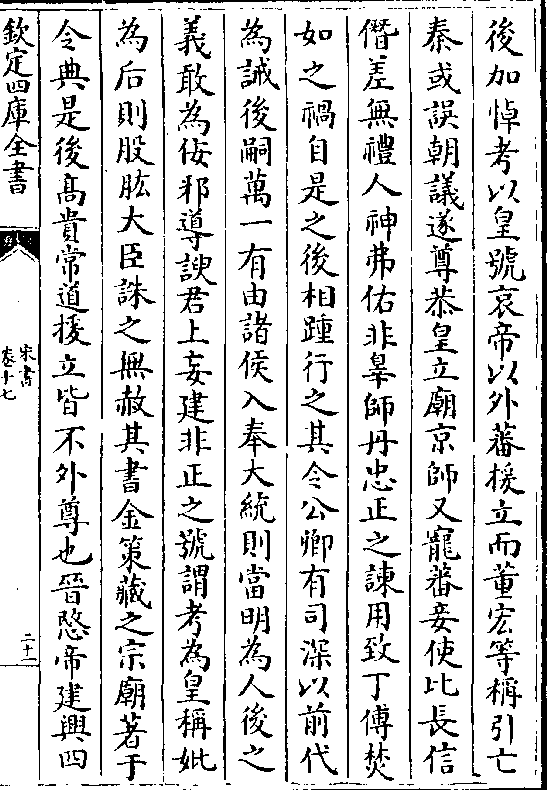 後加悼考以皇號哀帝以外蕃援立而董宏等稱引亡
秦或誤朝議遂尊恭皇立廟京師又寵蕃妾使比長信
僭差無禮人神弗佑非辠師丹忠正之諫用致丁傅焚
如之禍自是之後相踵行之其令公卿有司深以前代
為誡後嗣萬一有由諸侯入奉大統則當明為人後之
義敢為佞邪導諛君上妄建非正之號謂考為皇稱妣
為后則股肱大臣誅之無赦其書金策藏之宗廟著于
令典是後高貴常道援立皆不外尊也晉愍帝建興四
欽定四庫全書
宋書
卷十七
二十一